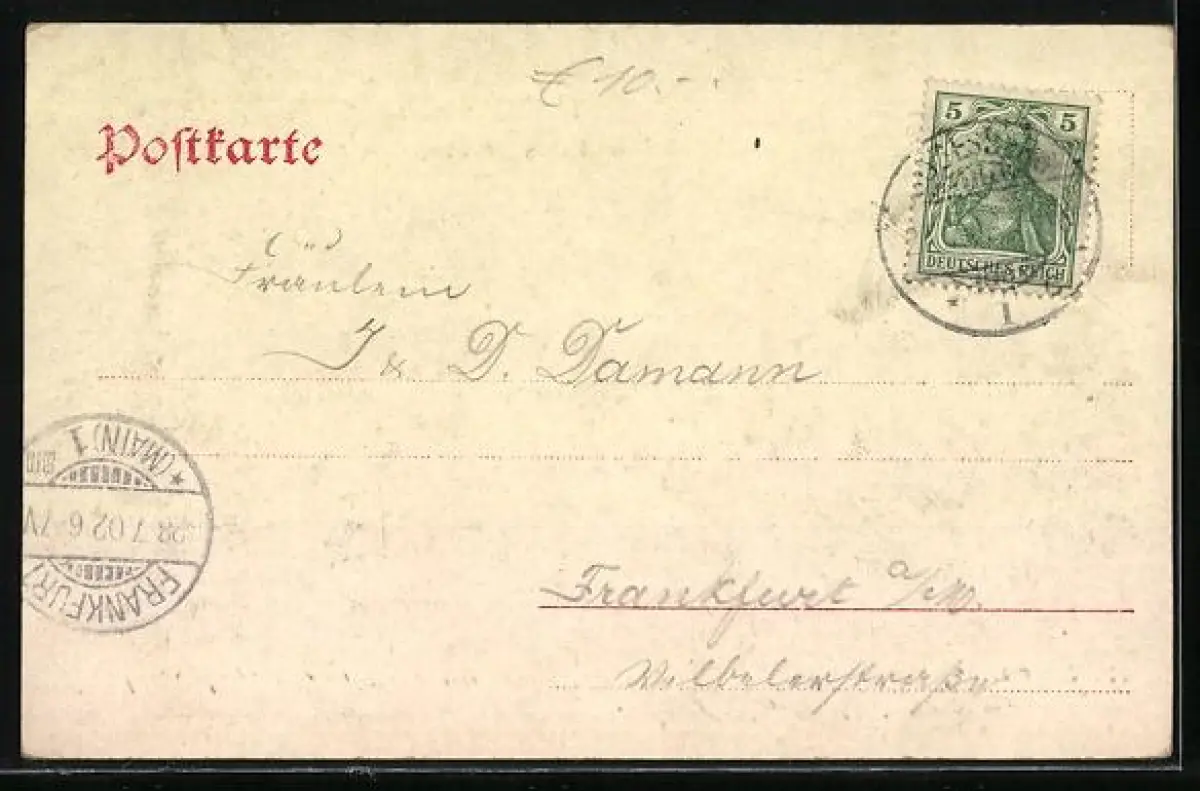 € 10.-
Postkarte
5 5
DEUTSCHES REICH
1
Fräulein
J & D. Damann
* (MAIN) 1
28.7.02 6-7V
FRANKFURT
Frankfurt a/M.
Vilbelerstraße